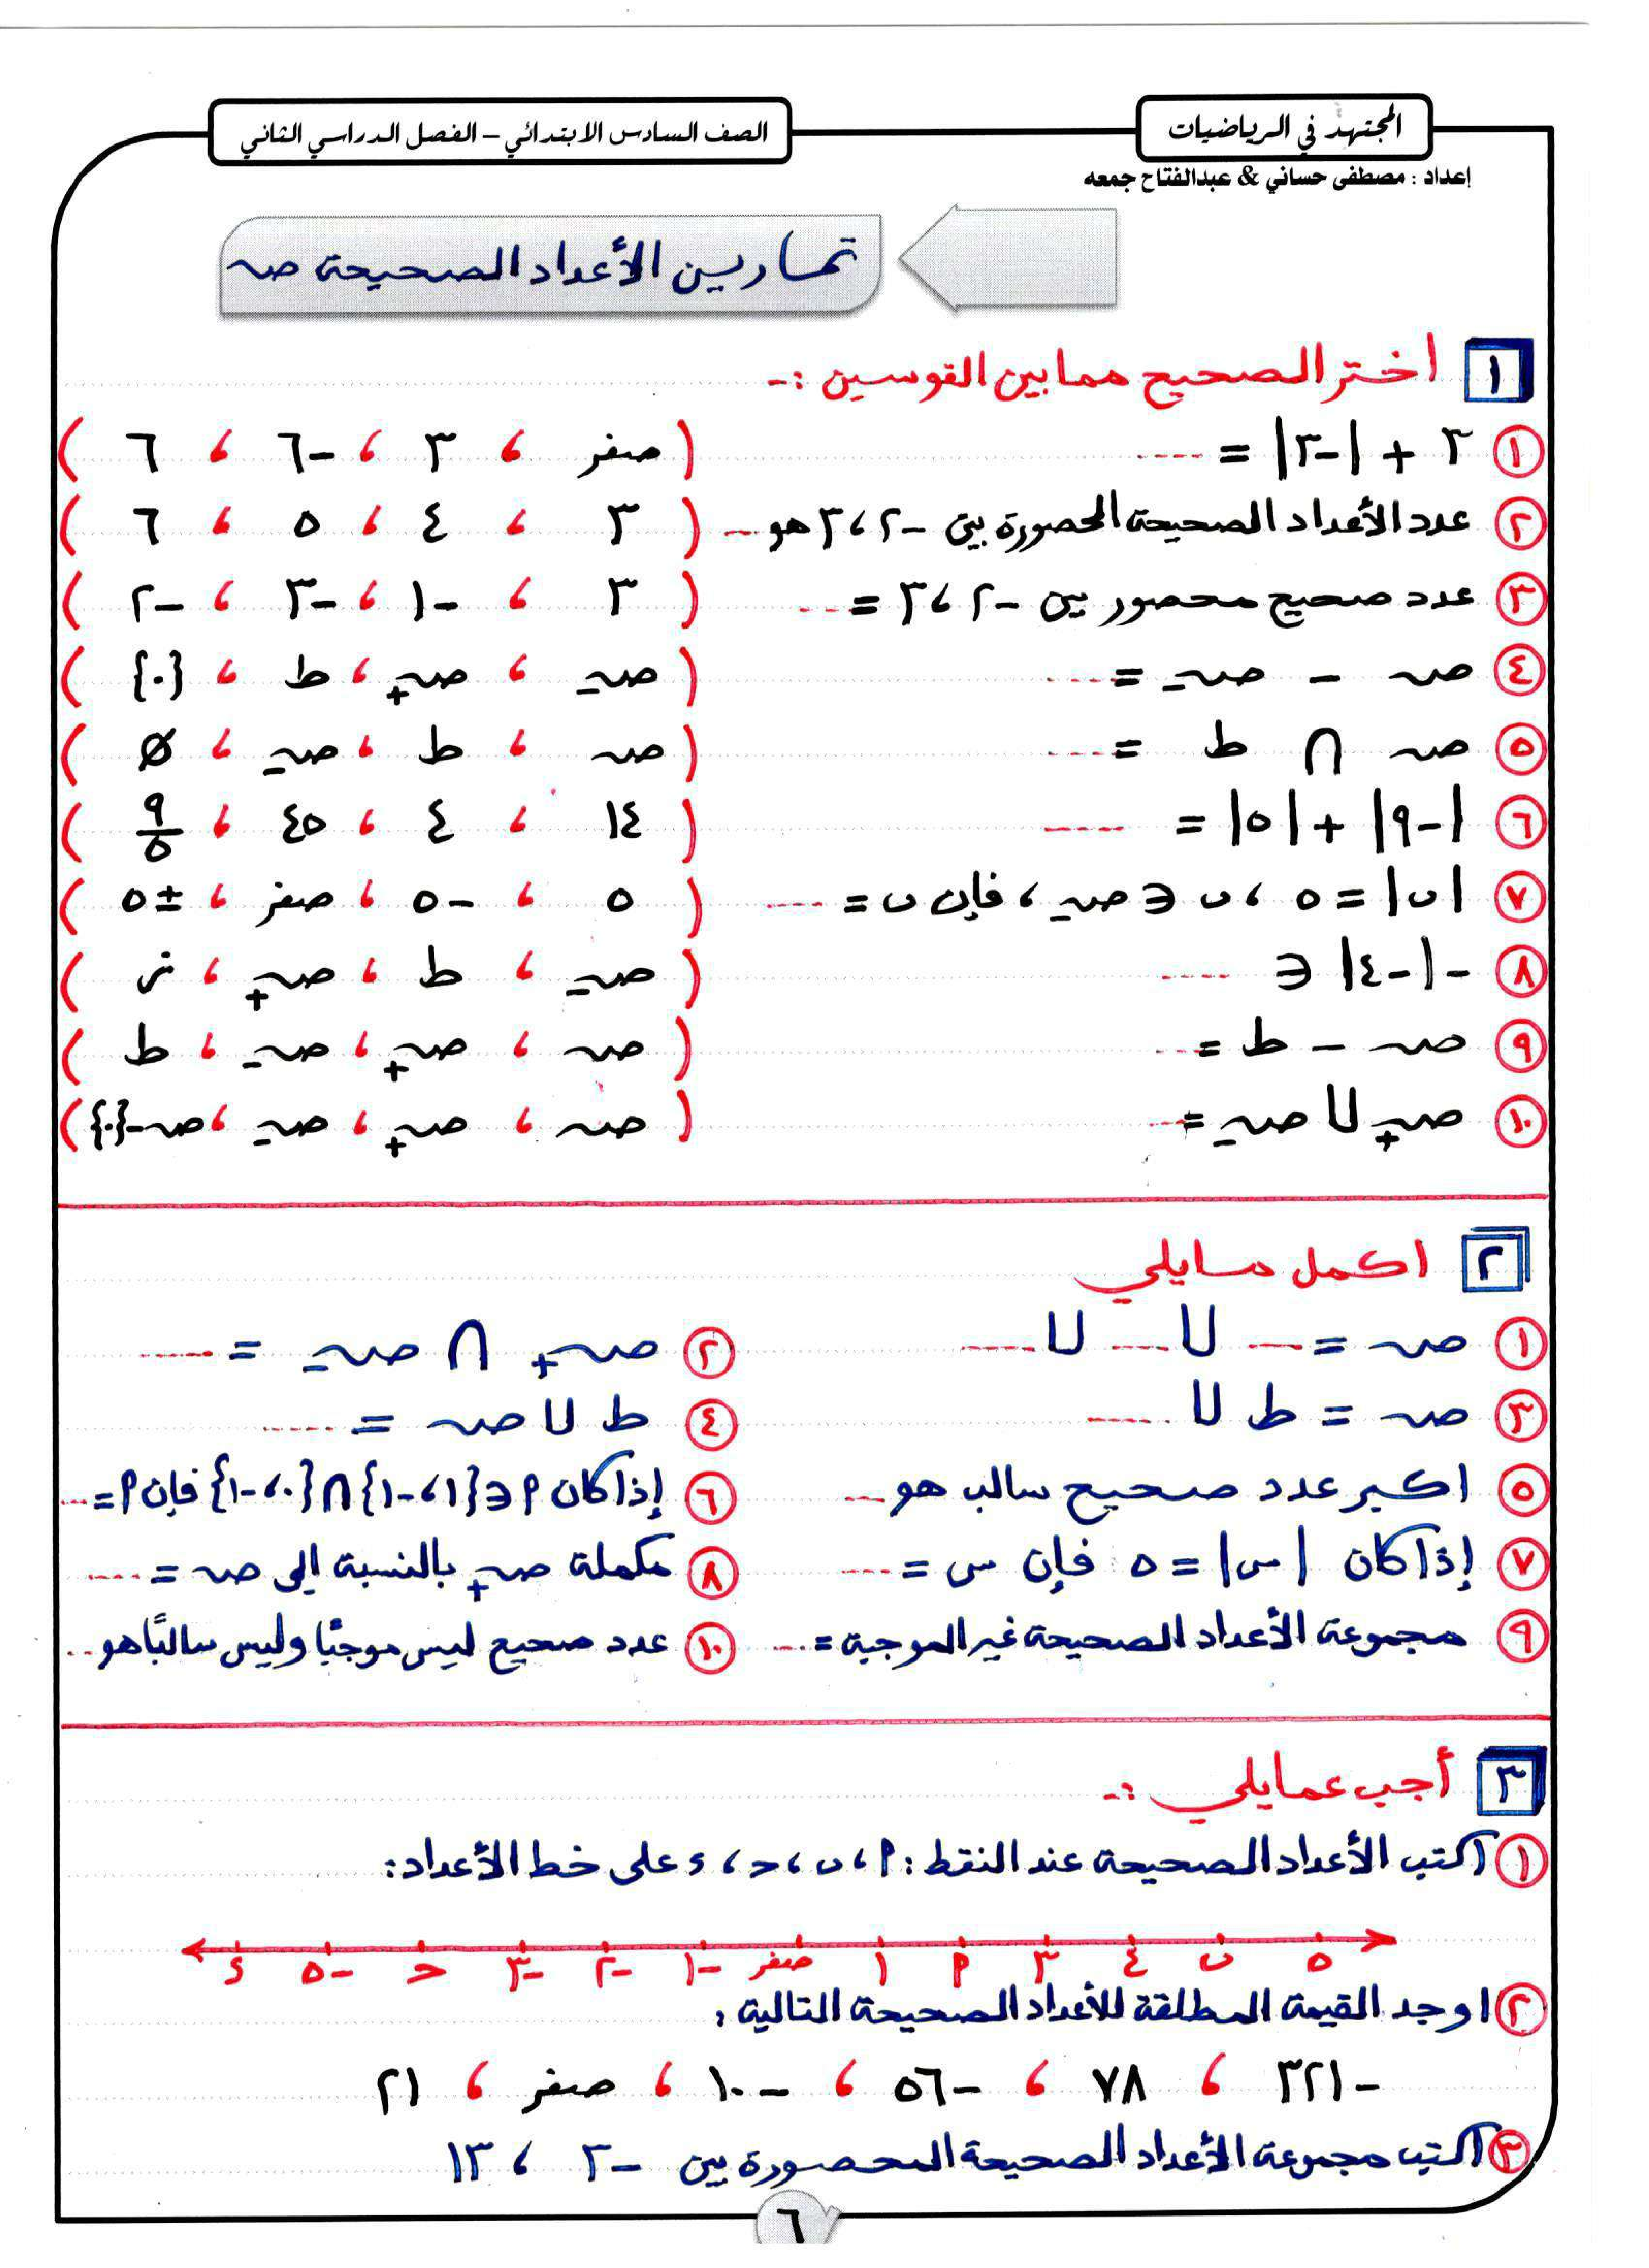 المجتهد في الرياضيات
الصف السادس الابتدائي – الفصل الدراسي الثاني
إعداد : مصطفى حساني & عبدالفتاح جمعه
تمارين الأعداد الصحيحة صـ
١ اختر الصحيح مما بين القوسين :-
① ٣ + |-٣| = ---- ( صفر ، ٣ ، -٦ ، ٦ )
② عدد الأعداد الصحيحة المحصورة بين -٢ ، ٣ هو --- ( ٣ ، ٤ ، ٥ ، ٦ )
③ عدد صحيح محصور بين -٢ ، ٣ = --- ( ٣ ، -١ ، -٣ ، -٢ )
④ صـ - صـ₋ = ---- ( صـ₋ ، صـ₊ ، ط ، {٠} )
⑤ صـ ∩ ط = ---- ( صـ ، ط ، صـ₋ ، Ø )
⑥ |-٩| + |٥| = ---- ( ١٤ ، ٤ ، ٤٥ ، ٩/٥ )
⑦ |ب| = ٥ ، ب ∈ صـ₋ ، فإن ب = ---- ( ٥ ، -٥ ، صفر ، ±٥ )
⑧ -|-٤| ∈ ---- ( صـ₋ ، ط ، صـ₊ ، ف )
⑨ صـ - ط = --- ( صـ ، صـ₊ ، صـ₋ ، ط )
⑩ صـ₊ ∪ صـ₋ = --- ( صـ ، صـ₊ ، صـ₋ ، صـ-{٠} )
٢ اكمل مايلي
① صـ = --- ∪ --- ∪ ---
② صـ₊ ∩ صـ₋ = ----
③ صـ = ط ∪ ----
④ ط ∪ صـ = ----
⑤ اكبر عدد صحيح سالب هو ---
⑥ إذا كان ٩ ∈ {١ ، -١} ∩ {٠ ، -١} فإن ٩ = ---
⑦ إذا كان |س| = ٥ فإن س = ----
⑧ مكملة صـ₊ بالنسبة إلى صـ = ----
⑨ مجموعة الأعداد الصحيحة غير الموجبة = ---
⑩ عدد صحيح ليس موجبًا وليس سالبًا هو ---
٣ أجب عمايلي :-
① اكتب الأعداد الصحيحة عند النقط : ٩ ، ب ، ح ، ء على خط الأعداد:
ء -٥ ح -٣ -٢ -١ صفر ١ ٩ ٣ ٤ ب ٥
② اوجد القيمة المطلقة للأعداد الصحيحة التالية :
-٣٢١ ، ٧٨ ، -٥٦ ، -١٠ ، صفر ، ٢١
③ اكتب مجموعة الأعداد الصحيحة المحصورة بين -٣ ، ١٣
٦